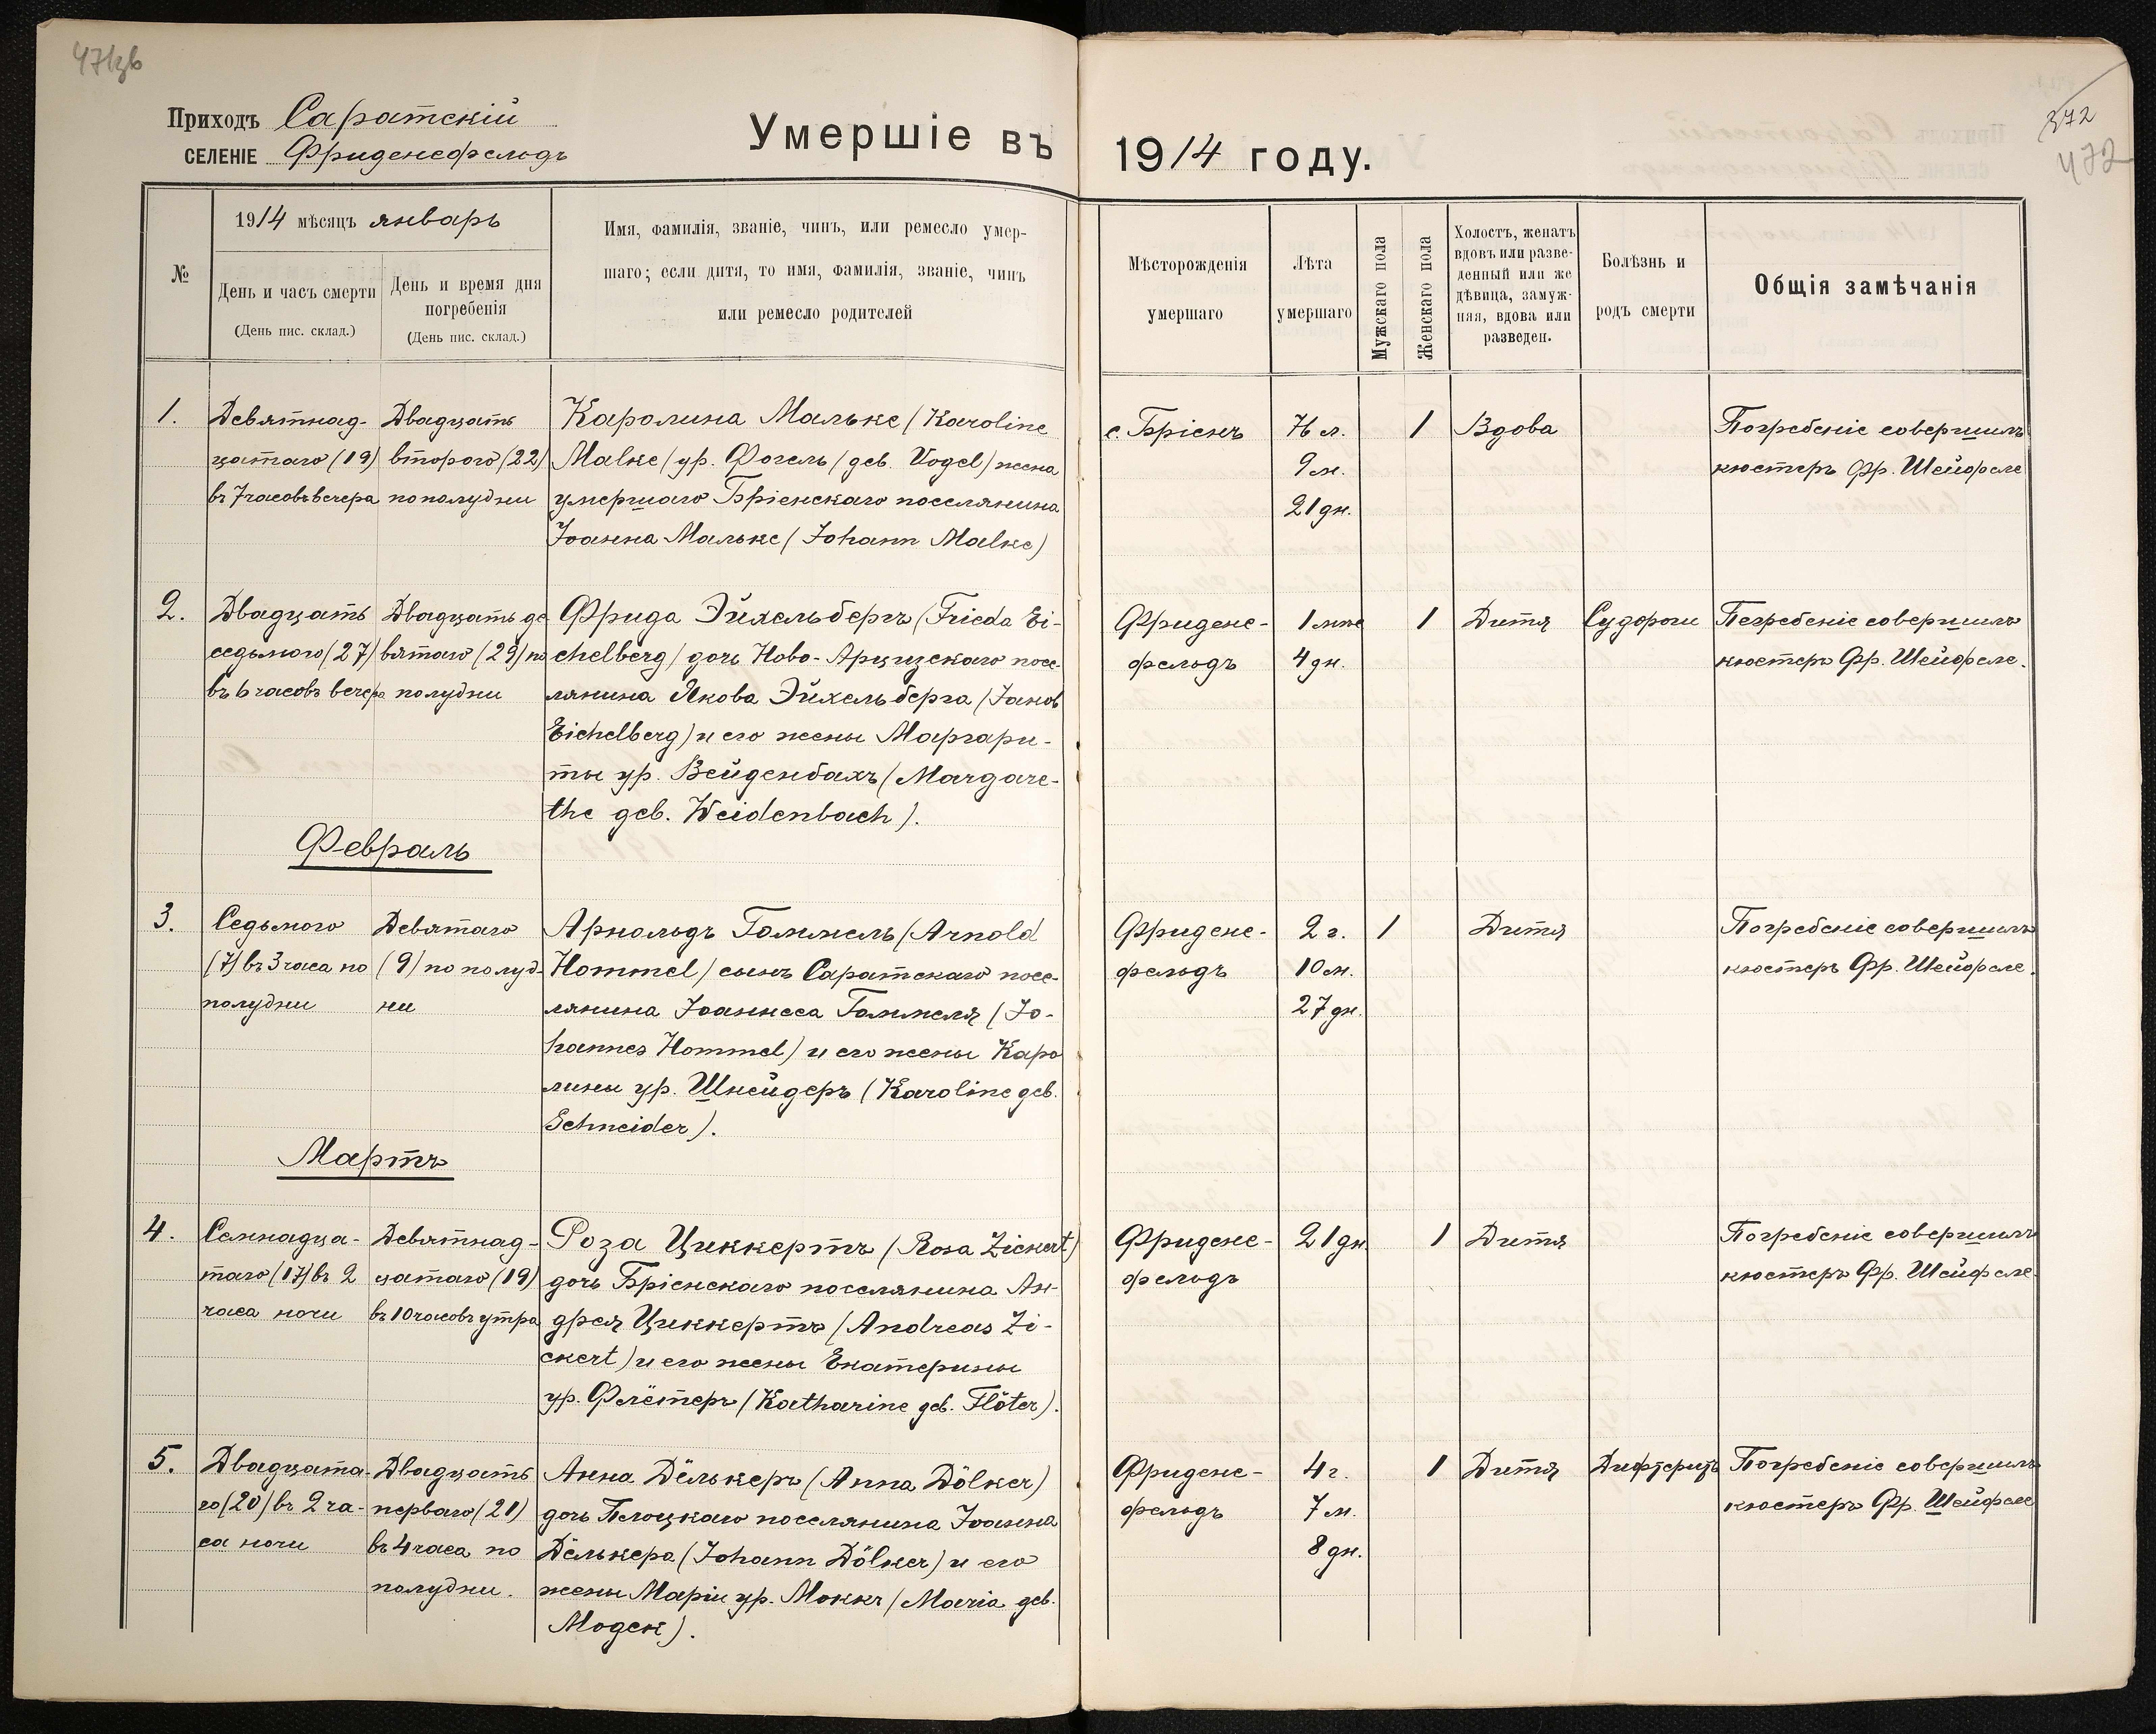 Приходъ Саратскій
СЕЛЕНІЕ Фриденсфельдъ
Умершіе въ 1914 году.
372
472
№
1914 мѣсяцъ январь
День и часъ смерти
(День пис. склад.)
День и время дня
погребенія
(День пис. склад.)
Имя, фамилія, званіе, чинъ, или ремесло умер-
шаго; если дитя, то имя, фамилія, званіе, чинъ
или ремесло родителей
Мѣсторожденія
умершаго
Лѣта
умершаго
Мужскаго пола
Женскаго пола
Холостъ, женатъ
вдовъ или разве-
денный или же
дѣвица, замуж-
няя, вдова или
разведен.
Болѣзнь и
родъ смерти
Общія замѣчанія
1.
Девятнад-
цатаго (19)
въ 7 часовъ вечера
Двадцать
второго (22)
пополудни
Каролина Мальке (Karoline
Malke) ур. Фогель (geb. Vogel) жена
умершаго Бріенскаго поселянина
Іоанна Мальке (Johann Malke)
с. Бріенъ
76 л.
9 м.
21 дн.
1
Вдова
Погребеніе совершилъ
кюстеръ Фр. Шейфеле
2.
Двадцать
седьмого (27)
въ 6 часовъ вечера
Двадцать де
вятаго (29) по
полудни
Фрида Эйхельбергъ (Frieda Ei-
chelberg) дочь Ново-Арцизскаго посе-
лянина Якова Эйхельберга (Jакоb
Eichelberg) и его жены Маргари-
ты ур. Вейденбахъ (Margare-
the geb. Weidenbach).
Фридене-
фельдъ
4 дн.
1
Дитя
Судороги
Погребеніе совершилъ
кюстеръ Фр. Шейфеле.
Февраль
3.
Седьмого
(7) въ 3 часа по
полудни
Девятаго
(9) по полуд-
ни
Арнольдъ Гоммель (Arnold
Hommel) сынъ Саратскаго посе-
лянина Іоаннеса Гоммеля (Jo-
hannes Hommel) и его жены Каро
лины ур. Шнейдеръ (Karoline geb.
Schneider).
Фридене-
фельдъ
2 г.
10 м.
27 дн.
1
Дитя
Погребеніе совершилъ
кюстеръ Фр. Шейфеле.
Мартъ
4.
Семнадца-
таго (17) въ 2
часа ночи
Девятнад-
цатаго (19)
въ 10 часовъ утра
Роза Циккертъ (Rosa Zickert)
дочь Бріенскаго поселянина Ан-
дрея Циккертъ (Andreas Zi-
ckert) и его жены Екатерины
ур. Флётеръ (Katharine geb. Flöter).
Фридене-
фельдъ
21 дн.
1
Дитя
Погребеніе совершилъ
кюстеръ Фр. Шейфеле.
5.
Двадцата-
го (20) въ 2 ча-
са ночи
Двадцать
перваго (21)
въ 4 часа по
полудни.
Анна Дёлькеръ (Anna Dölker)
дочь Плоцкаго поселянина Іоанна
Дёлькера (Johann Dölker) и его
жены Маріи ур. Моккъ (Maria geb.
Фридене-
фельдъ
4 г.
7 м.
8 дн.
1
Дитя
Дифтеритъ
Погребеніе совершилъ
кюстеръ Фр. Шейфеле